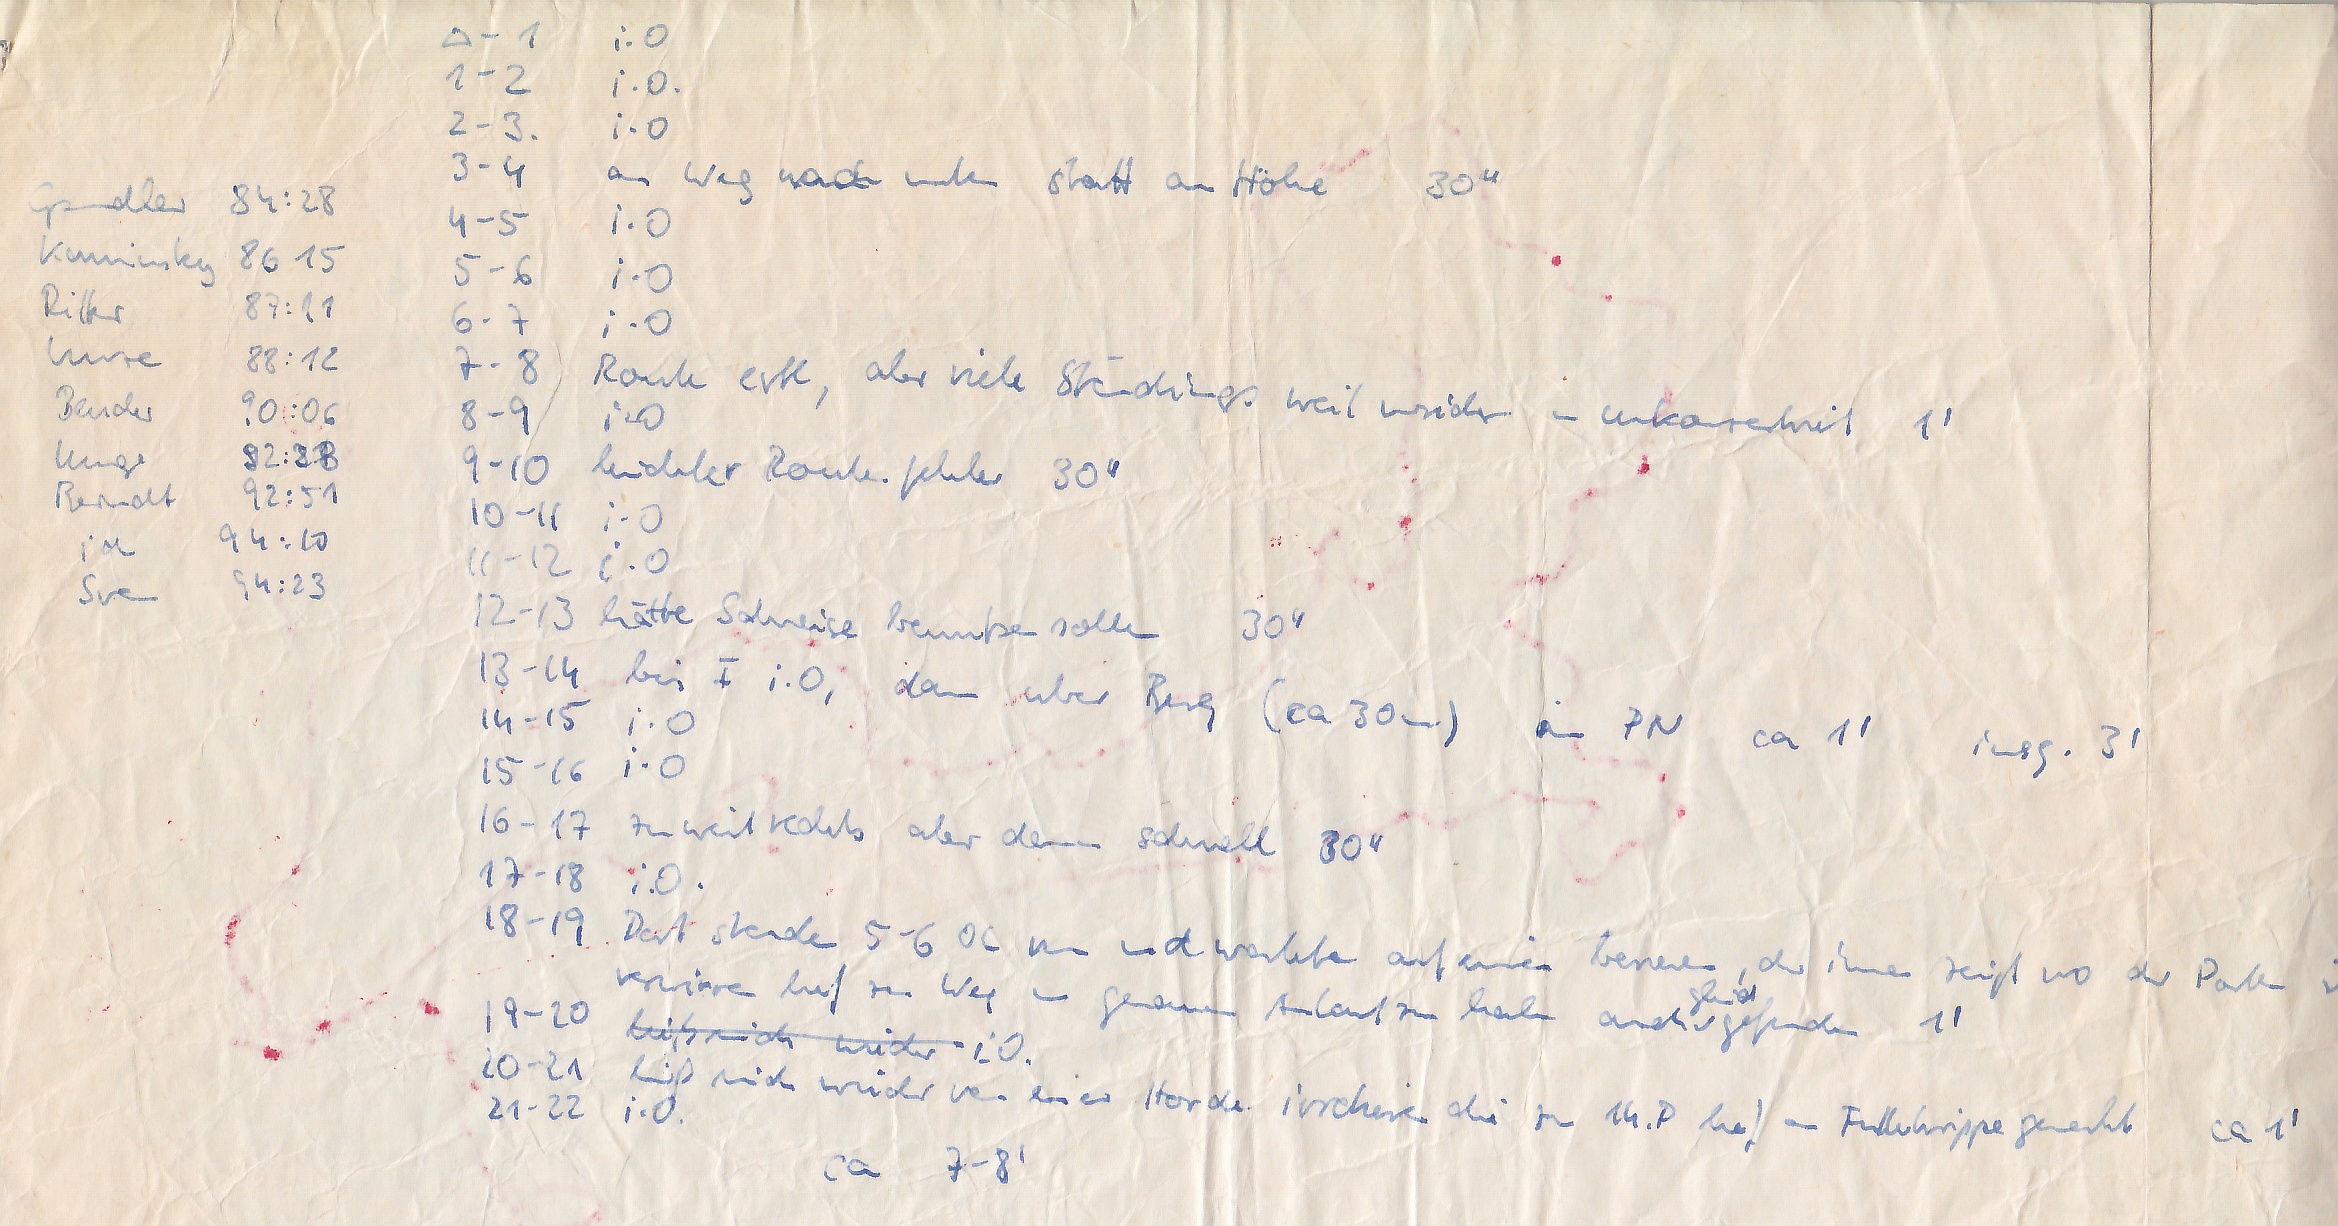 △-1 i.O
1-2 i.O.
2-3. i.O
3-4 am Weg nach unten statt an Höhe 30"
4-5 i.O
5-6 i.O
6-7 i.O
7-8 Route evtl, aber viele weil wieder 1'
8-9 i.O
9-10 leichter Routenfehler 30"
10-11 i.O
11-12 i.O
12-13 hätte Schneise benutzen sollen 30"
13-14 bis i.O, dann über Berg (ca 30m) im PN ca 1' insg. 3'
14-15 i.O
15-16 i.O
16-17 zu weit rechts aber dann schnell 30"
17-18 i.O.
18-19 Dort standen 5-6 OL und warteten auf einen besseren, der ihnen zeigt wo der Posten
lief zum Weg um genauen Anlauf zu haben gleich gefunden 1'
19-20 i.O.
20-21 ließ mich wieder von einer Horde die zum 14.P lief an Futterkrippe gemerkt ca 1'
21-22 i.O.
ca 7-8'
84:28
Kaminsky 86 15
Ritter 87:11
88:12
Bender 90:06
Berndt 92:51
ich 94:10
Sven 94:23